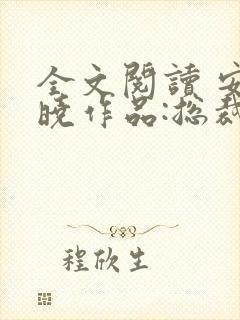 全文閱讀 安
曉作品:总裁
程欣生